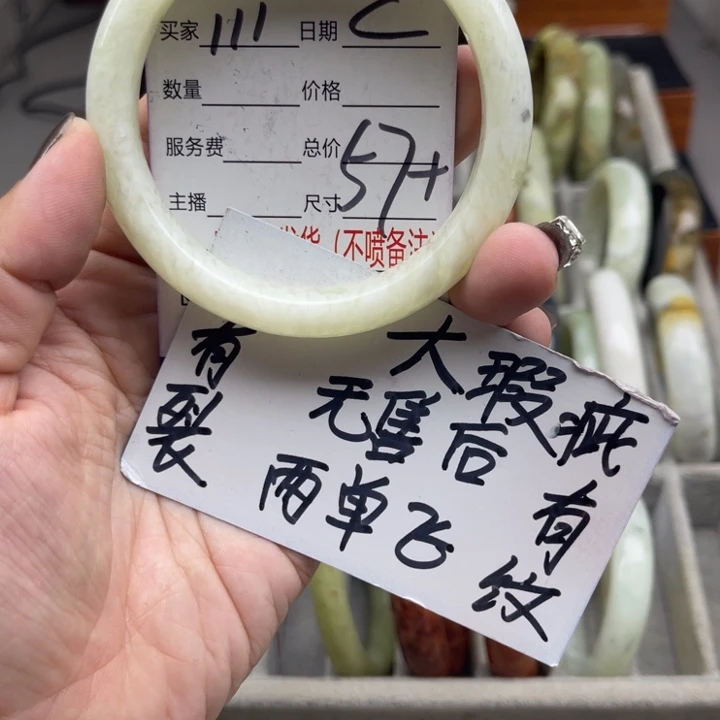 买家 111 日期 C
数量 价格
服务费 总价
主播 尺寸 57+
发货(不喷备注)
有裂
大瑕疵
无售后
两单飞
有纹